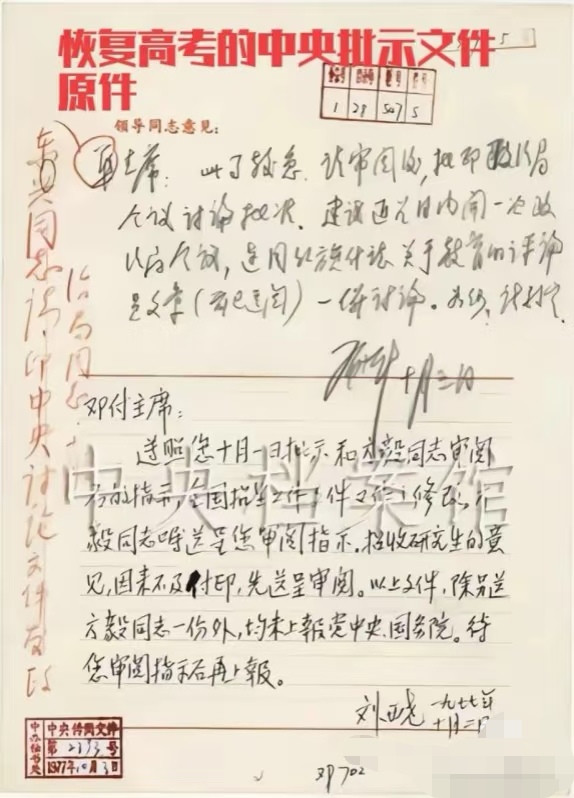 恢复高考的中央批示文件
原件
1 28 507 5
领导同志意见:
华主席:此事较急,请审阅后,批印政治局
会议讨论批准。建议近几日内开一次政
治局会议,连同红旗杂志关于教育的评论
员文章(前已送阅)一併讨论。
十月三日
东兴同志请印中央讨论文件发政
治局同志
邓付主席:
遵照您十月一日批示和方毅同志审阅
后的指示,全国招生工作文件又作了修改,
毅同志嘱送呈您审阅指示。招收研究生的意
见,因来不及付印,先送呈审阅。以上文件,除另送
方毅同志一份外,均未上报党中央、国务院。待
您审阅指示后再上报。
刘西尧 一九七七年
十月二日
中央档案馆
中办秘书处
中央传阅文件
第2393号
1977年10月3日
邓702